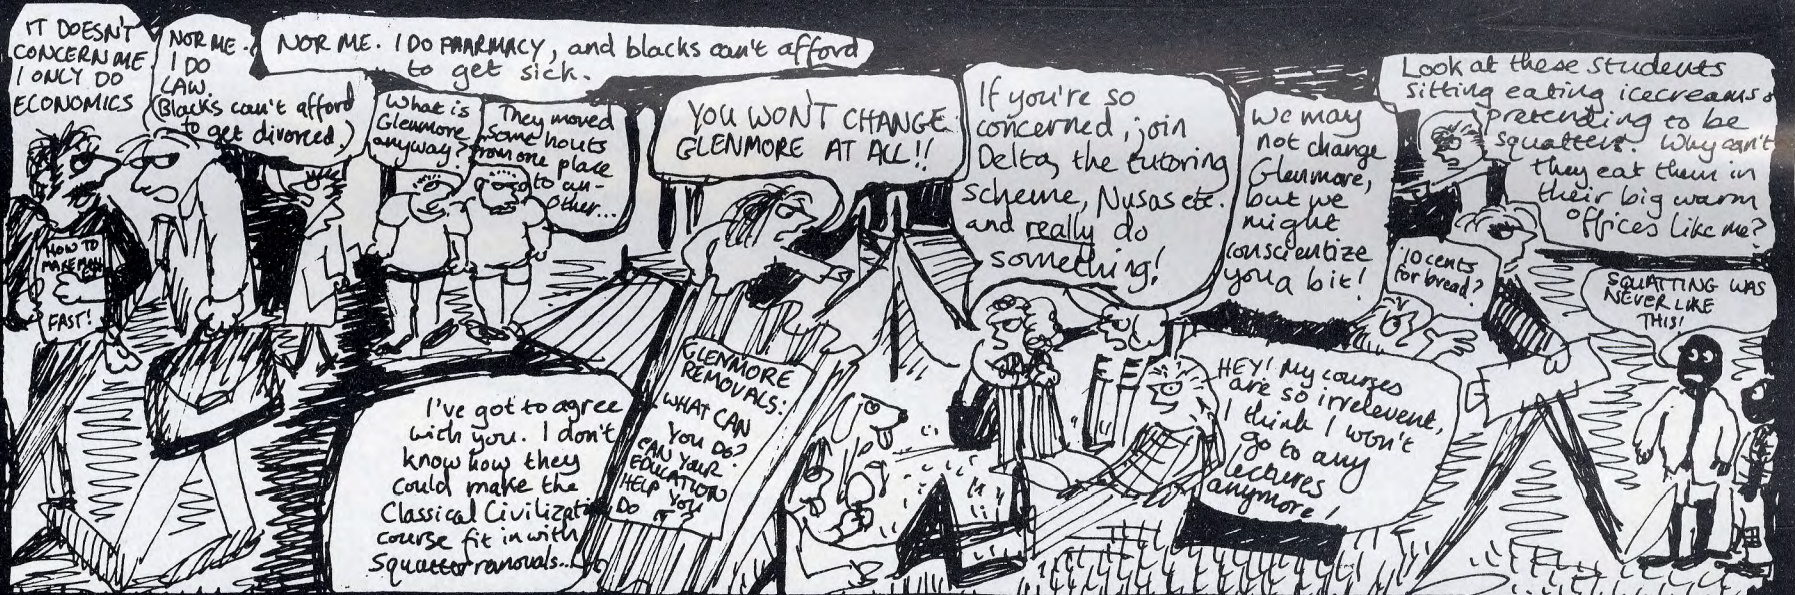 IT DOESN'T
CONCERN ME
I ONLY DO
ECONOMICS
NOR ME.
I DO
LAW.
(Blacks can't afford
to get divorced.)
NOR ME. I DO PHARMACY, and blacks can't afford
to get sick.
What is
Glenmore
anyway?
They moved
some houts
from one place
to an-
other...
YOU WON'T CHANGE
GLENMORE AT ALL!!
If you're so
concerned, join
Delta, the tutoring
scheme, Nusas etc.
and really do
something!
We may
not change
Glenmore,
but we
might
conscientize
you a bit!
Look at these students
sitting eating icecreams &
pretending to be
squatters. Why can't
they eat them in
their big warm
offices like me?
10 cents
for bread?
SQUATTING WAS
NEVER LIKE
THIS!
HOW TO
MAKE
FAST!
I've got to agree
with you. I don't
know how they
could make the
Classical Civilizatn
course fit in with
Squatter removals...
GLENMORE
REMOVALS:
WHAT CAN
YOU DO?
CAN YOUR
EDUCATION
HELP YOU
DO IT?
HEY! My courses
are so irrelevent,
I think I won't
go to any
lectures
anymore!